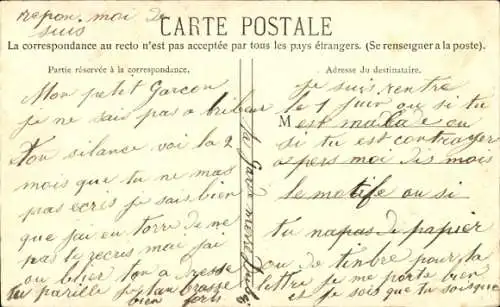 repon. moi de
suis
CARTE POSTALE
La correspondance au recto n'est pas acceptée par tous les pays étrangers. (Se renseigner à la poste).
Partie réservée à la correspondance.
Mon petit Garcon
je ne sais pas a
ton silance voi la 2
mois que tu ne mas
pas ecris je sais bien
que jai eu torre de ne
pas te recris mai jai
ou blier ton a resse
tu parille je tan brasse
bien fort
Adresse du destinataire.
je suis rentre
le 1 juin ou si tu
M est malade ou
si tu est
a pers moi des mois
le motife ou si
tu na pas de papier
ou de timbre pour la
lettre je me porte bien
et je sois que tu